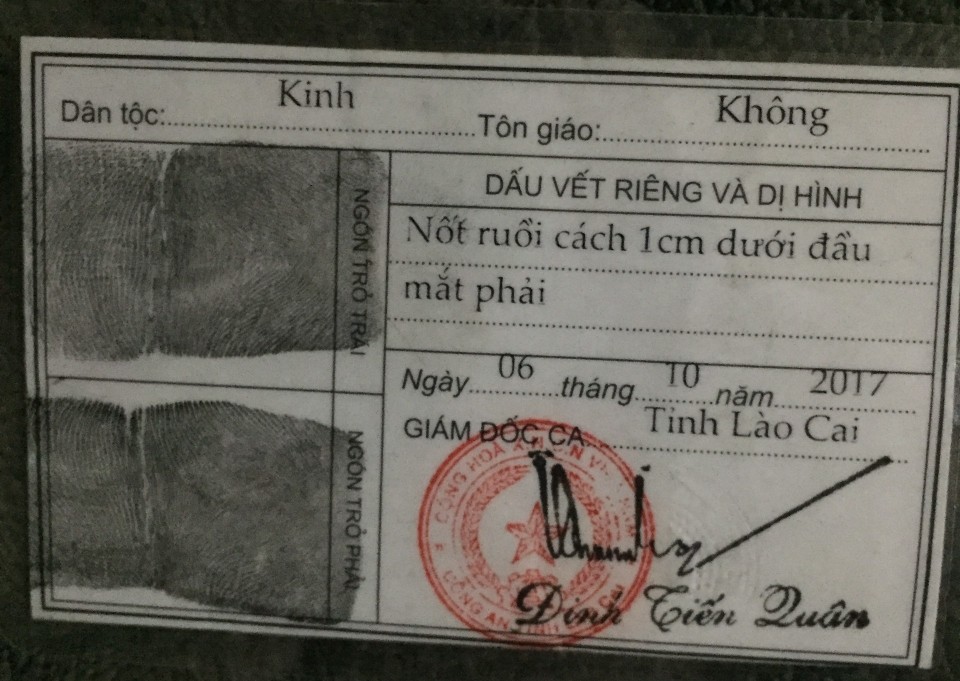 Dân tộc: Kinh Tôn giáo: Không
NGÓN TRỎ TRÁI
DẤU VẾT RIÊNG VÀ DỊ HÌNH
Nốt ruồi cách 1cm dưới đầu
mắt phải
Ngày 06 tháng 10 năm 2017
GIÁM ĐỐC CA Tỉnh Lào Cai
NGÓN TRỎ PHẢI
CỘNG HOÀ
CÔNG AN TỈNH
Đinh Tiến Quân